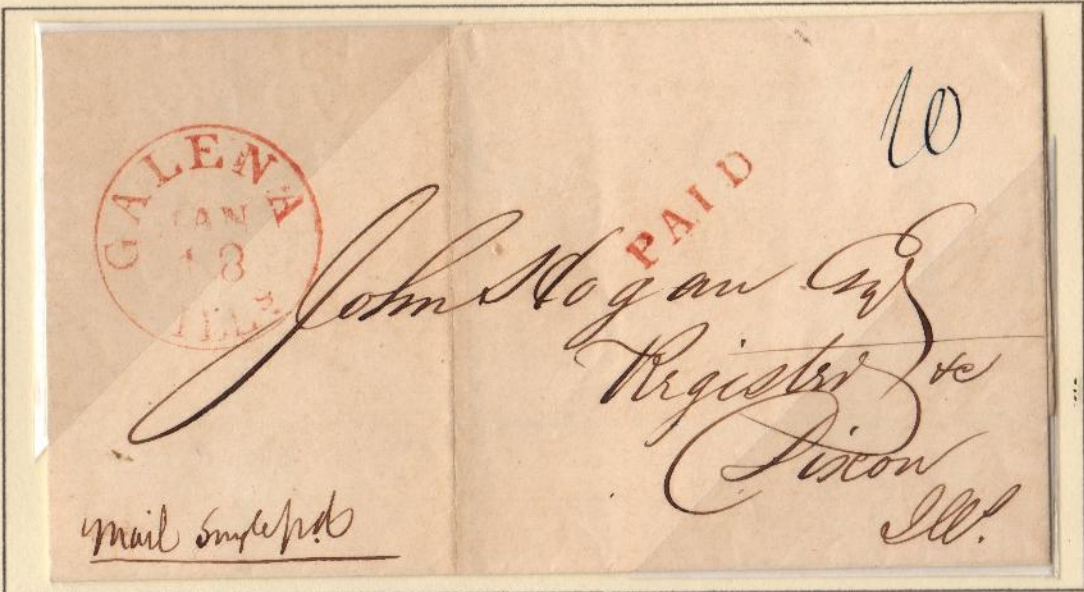 GALENA
JAN
18
ILLS
PAID
10
John Hogan Esqr
Register &c
Dixon
Ill.
Mail Single pd